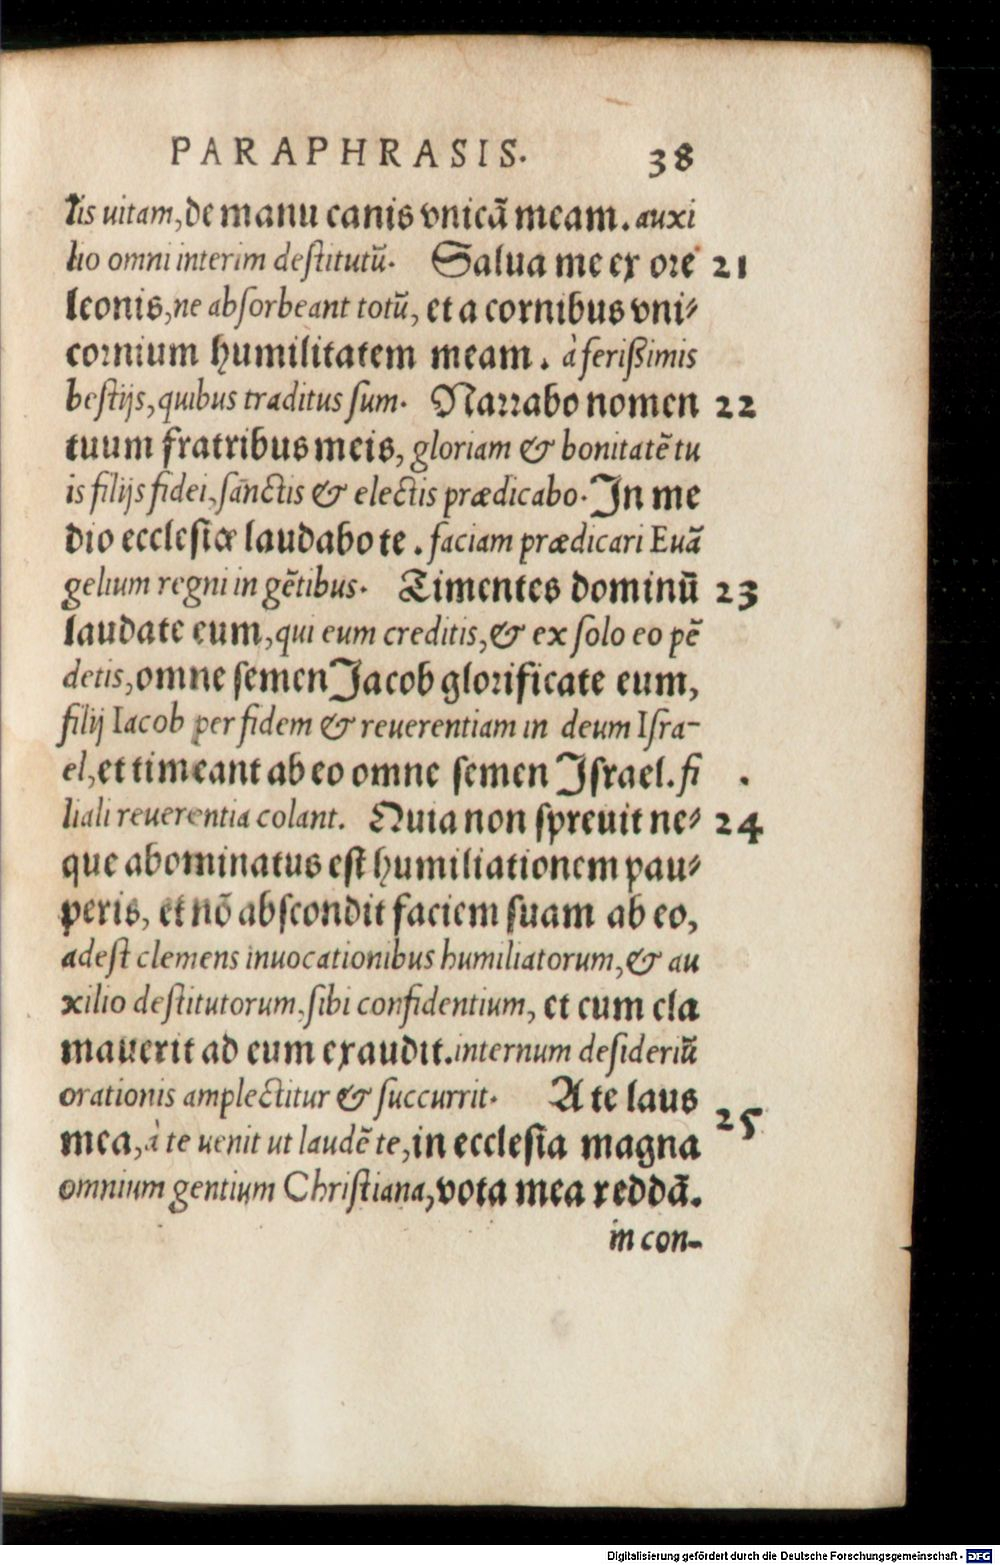 PARAPHRASIS. 38
lis uitam, de manu canis vnicã meam. auxi
lio omni interim destitutũ. Salua me ex ore 21
leonis, ne absorbeant totũ, et a cornibus vni-
cornium humilitatem meam. à ferißimis
bestijs, quibus traditus sum. Narrabo nomen 22
tuum fratribus meis, gloriam & bonitatẽ tu
is filijs fidei, sanctis & electis prædicabo. In me
dio ecclesiæ laudabo te. faciam prædicari Euã
gelium regni in gẽtibus. Timentes dominũ 23
laudate eum, qui eum creditis, & ex solo eo pẽ
detis, omne semen Jacob glorificate eum,
filij Iacob per fidem & reuerentiam in deum Isra-
el, et timeant ab eo omne semen Israel. fi
liali reuerentia colant. Quia non spreuit ne- 24
que abominatus est humiliationem pau-
peris, et nõ abscondit faciem suam ab eo,
adest clemens inuocationibus humiliatorum, & au
xilio destitutorum, sibi confidentium, et cum cla
mauerit ad eum exaudit. internum desideriũ
orationis amplectitur & succurrit. A te laus
mea, à te uenit ut laudẽ te, in ecclesia magna 25
omnium gentium Christiana, vota mea reddã.
in con-
Digitalisierung gefördert durch die Deutsche Forschungsgemeinschaft - DFG